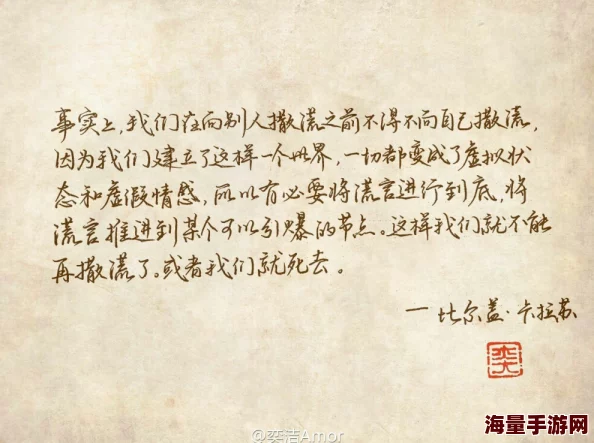 事实上,我们在向别人撒谎之前不得不向自己撒谎,
因为我们建立了这样一个世界,一切都变成了虚拟状
态和虚假情感,所以有必要将谎言进行到底,将
谎言推进到某个可以引爆的节点。这样我们就不能
再撒谎了。或者我们就死去。
— 比尔盖·卡拉苏
奕
@奕洁Amor
海量手游网